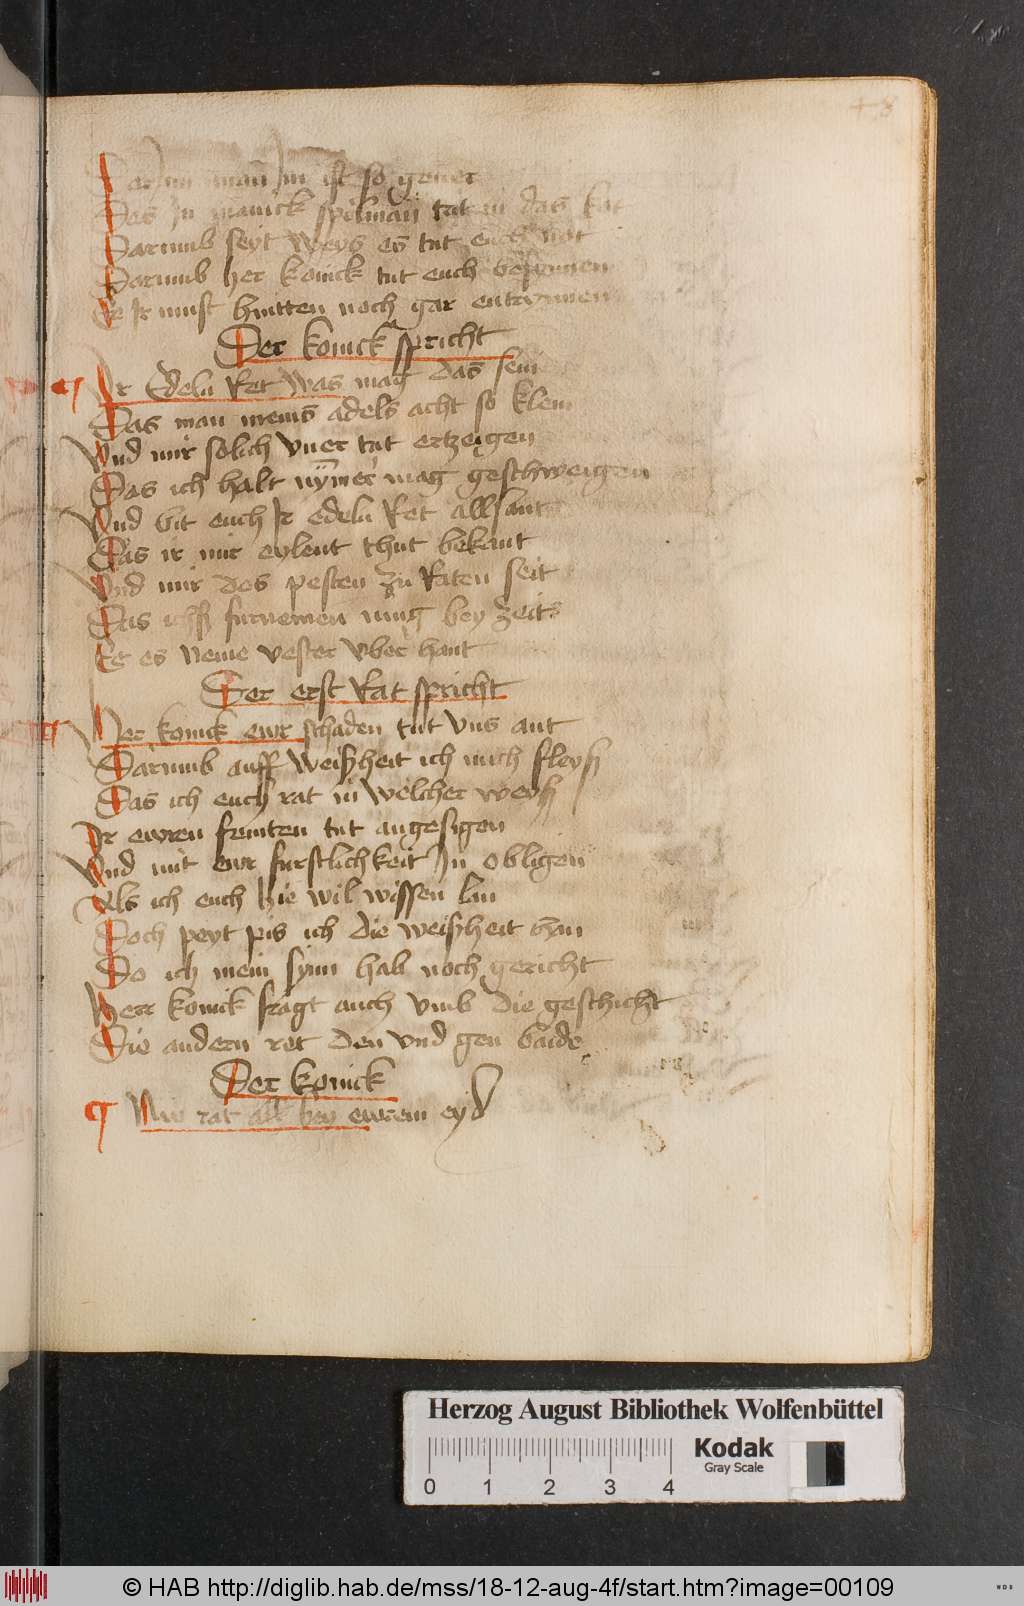 48
Dar Inn man Im ist so geuer
Das In manick spilman tut in das kat
Darumb seyt weys es tut euch not
Darumb her konick tut euch besynnen
Ee Ir must hintten noch gar entrynnen
Der konick spricht
Ir Edeln Ret was mag das sein
Das man meins adels acht so klein
Vnd mir solich vner tut ertzeigen
Das ich halt nymer mag geschweigen
Vnd bit euch Ir edeln Ret all sant
Das ir mir eylent thut bekant
Vnd mir des pesten zu Raten seit
Das ichß furnemen mug bey zeit
Ee es neme vester vber hant
Der erst Rat spricht
Her konick ewr schaden tut vns ant
Darumb auff weißheit ich mich fleyß
Das ich euch rat in welcher weyß
Ir ewren feinten tut angesigen
Vnd mit ewr furstlichkeit In obligen
Als ich euch hie wil wissen lan
Doch peyt pis ich die weißheit han
Do ich mein synn hab noch gericht
Herr konick fragt auch vmb die geschicht
Die andern ret den vnd gen baide
Der konick
Nu rat all bey ewrem eyd
Herzog August Bibliothek Wolfenbüttel
Kodak
Gray Scale
0 1 2 3 4
© HAB http://diglib.hab.de/mss/18-12-aug-4f/start.htm?image=00109
WDB